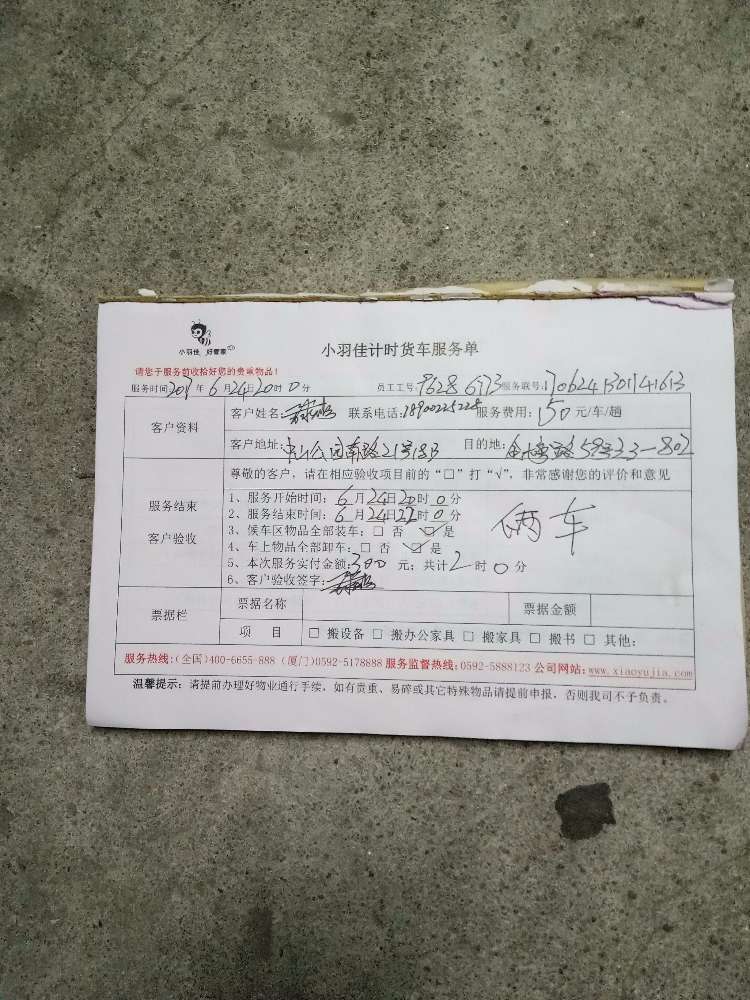 小羽佳 好管家
小羽佳计时货车服务单
请您于服务前收拾好您的贵重物品!
服务时间 年 6月24日20时0分 员工工号:9628 6973 服务联号:170624130141613
客户资料
客户姓名: 联系电话: 服务费用:150元/车/趟
客户地址:中山公园南路21号 目的地: 路59号23-802
尊敬的客户,请在相应验收项目前的“□”打“√”,非常感谢您的评价和意见
服务结束
客户验收
1、服务开始时间:6月24日20时0分
2、服务结束时间:6月24日22时0分
3、候车区物品全部装车:□ 否 ☑ 是
4、车上物品全部卸车:□ 否 ☑ 是
俩车
5、本次服务实付金额:300元;共计2时0分
6、客户验收签字:
票据栏
票据名称 票据金额
项 目 □ 搬设备 □ 搬办公家具 □ 搬家具 □ 搬书 □ 其他:
服务热线:(全国)400-6655-888 (厦门)0592-5178888 服务监督热线:0592-5888123 公司网站:www.xiaoyujia.com
温馨提示:请提前办理好物业通行手续,如有贵重、易碎或其它特殊物品请提前申报,否则我司不予负责。